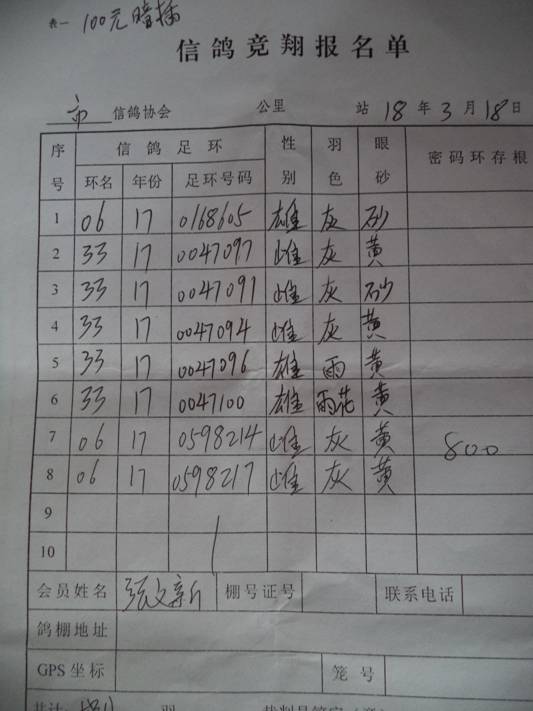 表一 100元暗插
信鸽竞翔报名单
市 信鸽协会 公里 站 18年3月18日
序号 信鸽足环 性别 羽色 眼砂 密码环存根
环名 年份 足环号码
1 06 17 0168605 雄 灰 砂
2 33 17 0047097 雌 灰 黄
3 33 17 0047091 雌 灰 砂
4 33 17 0047094 雌 灰 黄
5 33 17 0047096 雄 雨 黄
6 33 17 0047100 雄 雨花 黄
7 06 17 0598214 雌 灰 黄 800
8 06 17 0598217 雌 灰 黄
9
10
会员姓名 张文新 棚号证号 联系电话
鸽棚地址
GPS坐标 笼号